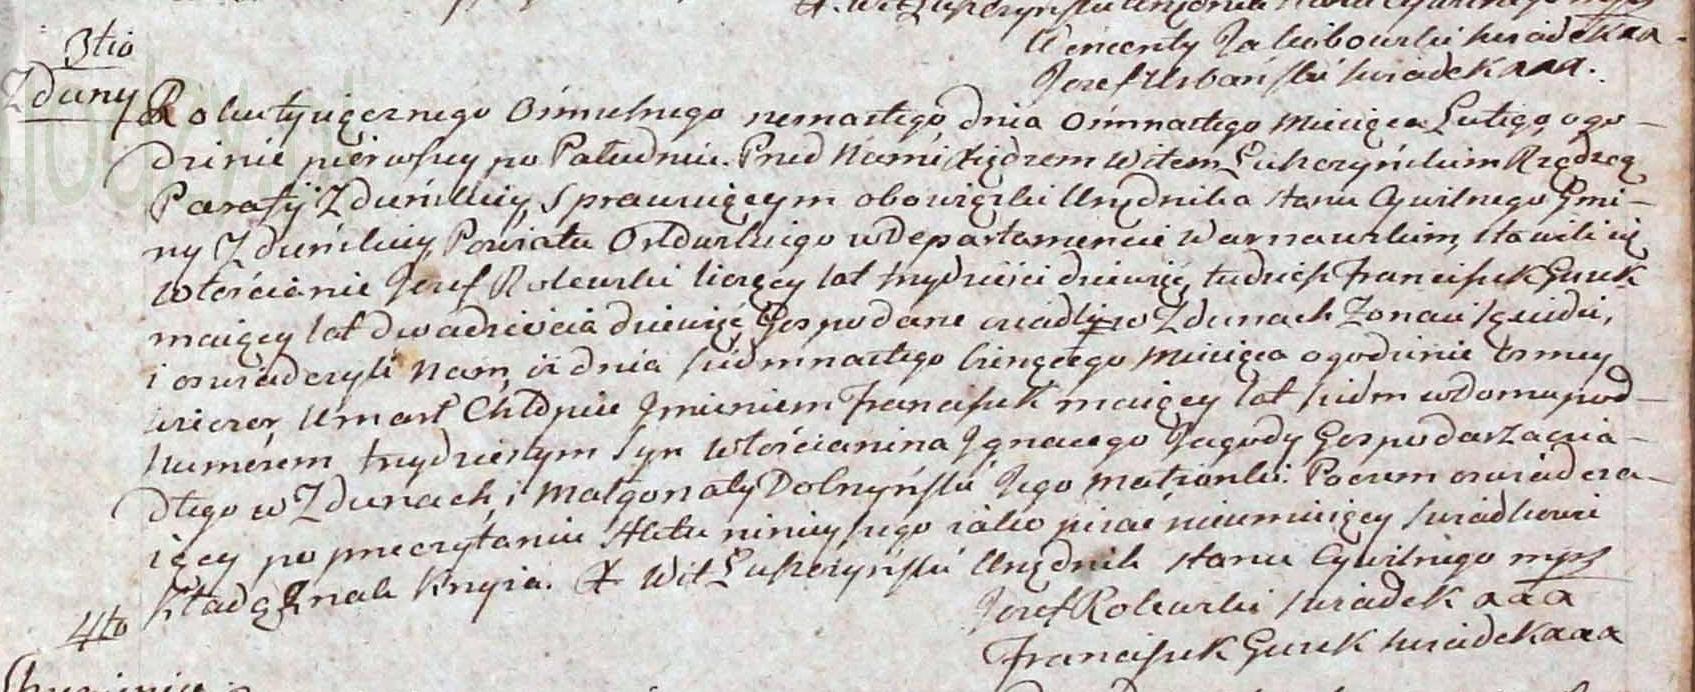 X. Wit Łukczyński Urzędnik Stanu Cywilnego mpp
Wincenty Jakubowski swiadek xxx.
Jozef Urbański swiadek xxx.
3tio
Zduny
Roku tysięcznego osmsetnego nemastego dnia osmnastego Miesięca Lutego o go-
dzinie pierwszey po Południu. Przed Nami Xiędzem Witem Łukczyńskim Rządzcą
Parafij Zduńskiey sprawuiącym obowiązki Urzędnika stanu Cywilnego Gmi-
ny Zduńskiey, Powiatu Orłowskiego w Departamencie Warszawskim, stawili się
Włościanie Jozef Rolewski liczący lat trzydzieści dziewięć, tudzież Franciszek Gurek
maiący lat dwadzieścia dziewięć Gospodarze osiadli w Zdunach Zonaci Sąsiedzi,
i oswiadczyli Nam, iż dnia siedmnastego bieżącego Miesięca o godzinie osmey
wieczor, Umarł Chłopiec Jmieniem Franciszek maiący lat siedm w domu pod
Numerem trzydziestym Syn Włościanina Jgnacego Jagody Gospodarza osia-
dłego w Zdunach, i Małgorzaty Dolnyński Jego małżonki. Poczem oswiadcza-
iący po przeczytaniu Aktu ninieyszego iako pisać nieumieiący swiadkowie
Kładą Znak Krzyża. X Wit Łukczyński Urzędnik stanu Cywilnego mpp
Jozef Rolewski swiadek xxx
Franciszek Gurek swiadek xxx
4to